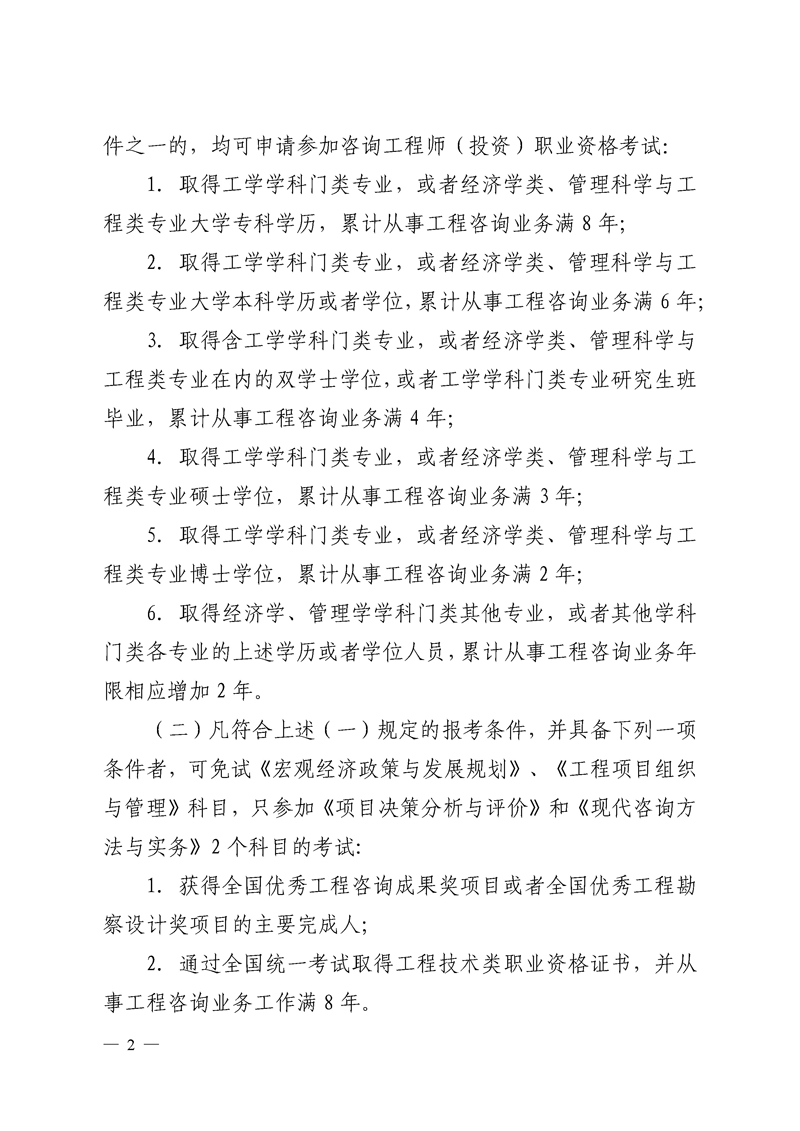 件之一的，均可申请参加咨询工程师（投资）职业资格考试：
1. 取得工学学科门类专业，或者经济学类、管理科学与工
程类专业大学专科学历，累计从事工程咨询业务满 8 年；
2. 取得工学学科门类专业，或者经济学类、管理科学与工
程类专业大学本科学历或者学位，累计从事工程咨询业务满 6 年；
3. 取得含工学学科门类专业，或者经济学类、管理科学与
工程类专业在内的双学士学位，或者工学学科门类专业研究生班
毕业，累计从事工程咨询业务满 4 年；
4. 取得工学学科门类专业，或者经济学类、管理科学与工
程类专业硕士学位，累计从事工程咨询业务满 3 年；
5. 取得工学学科门类专业，或者经济学类、管理科学与工
程类专业博士学位，累计从事工程咨询业务满 2 年；
6. 取得经济学、管理学学科门类其他专业，或者其他学科
门类各专业的上述学历或者学位人员，累计从事工程咨询业务年
限相应增加 2 年。
（二）凡符合上述（一）规定的报考条件，并具备下列一项
条件者，可免试《宏观经济政策与发展规划》、《工程项目组织
与管理》科目，只参加《项目决策分析与评价》和《现代咨询方
法与实务》2 个科目的考试：
1. 获得全国优秀工程咨询成果奖项目或者全国优秀工程勘
察设计奖项目的主要完成人；
2. 通过全国统一考试取得工程技术类职业资格证书，并从
事工程咨询业务工作满 8 年。
— 2 —